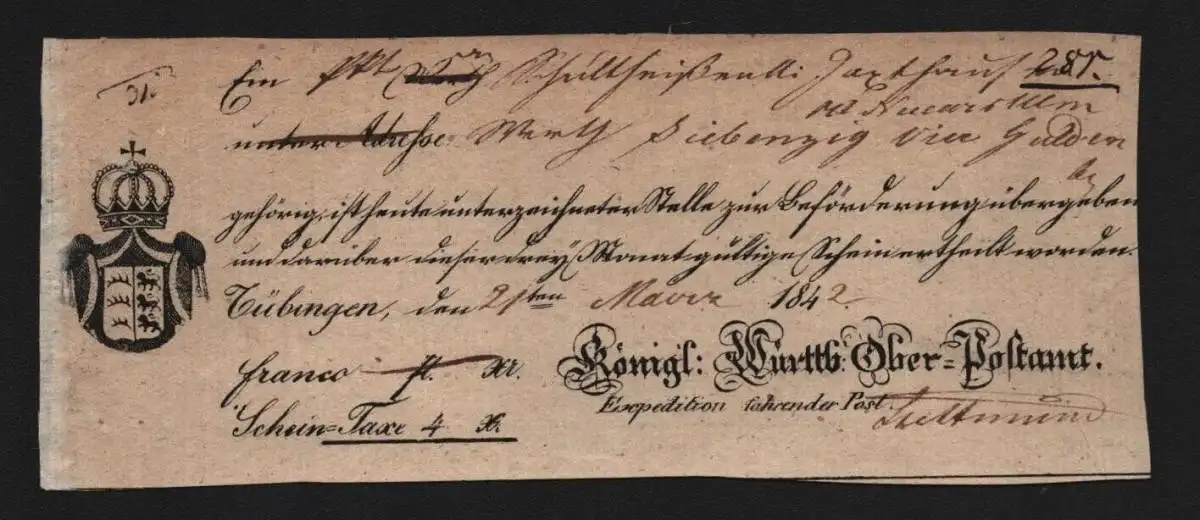 31.
Ein Pkt Schultheißenamt Jaxthausen
unter Adresse: Werth Siebenzig vier Gulden
gehörig, ist heute unterzeichneter Stelle zur Beförderung übergeben
und darüber dieser drey Monat gültige Schein ertheilt worden.
Tübingen, den 21ten März 1842
franco fl. xr.
Königl: Württb. Ober-Postamt.
Exepedition fahrender Post.
Schein-Taxe 4 xr.